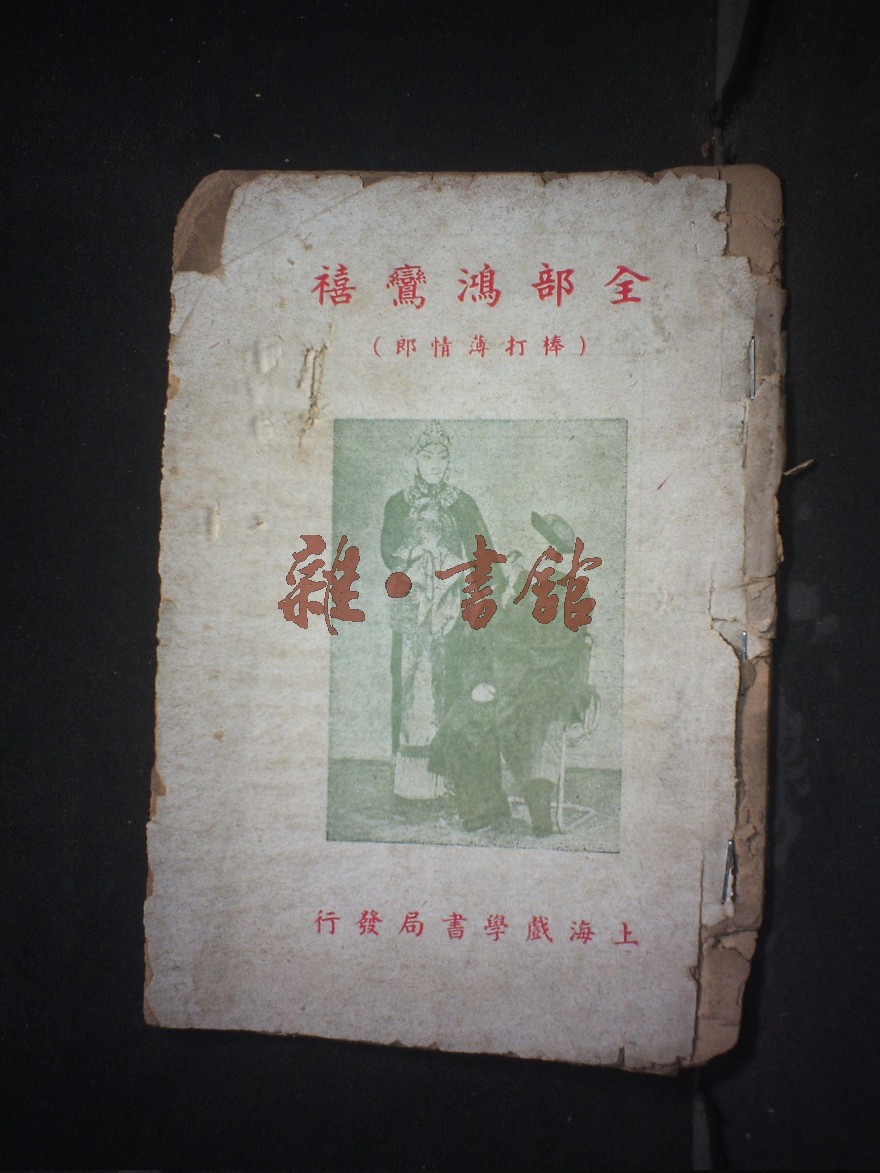 全部鴻鸞禧
(棒打薄情郎)
雜·書館
上海戲學書局發行